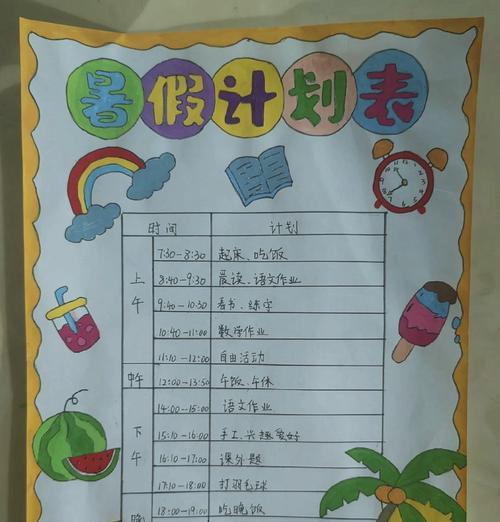 暑假计划表
时间 计划
上午
7:30-8:30 起床、吃饭
8:40-9:30 晨读、语文作业
9:40-10:30 看书、练字
10:40-11:00 数学作业
11:10-12:00 自由活动
中午 12:00-13:50 午饭、午休
下午
14:00-15:00 语文作业
15:10-16:00 手工、兴趣爱好
16:10-17:00 课外题
17:10-18:00 打羽毛球
晚 18:00-19:00 吃晚饭